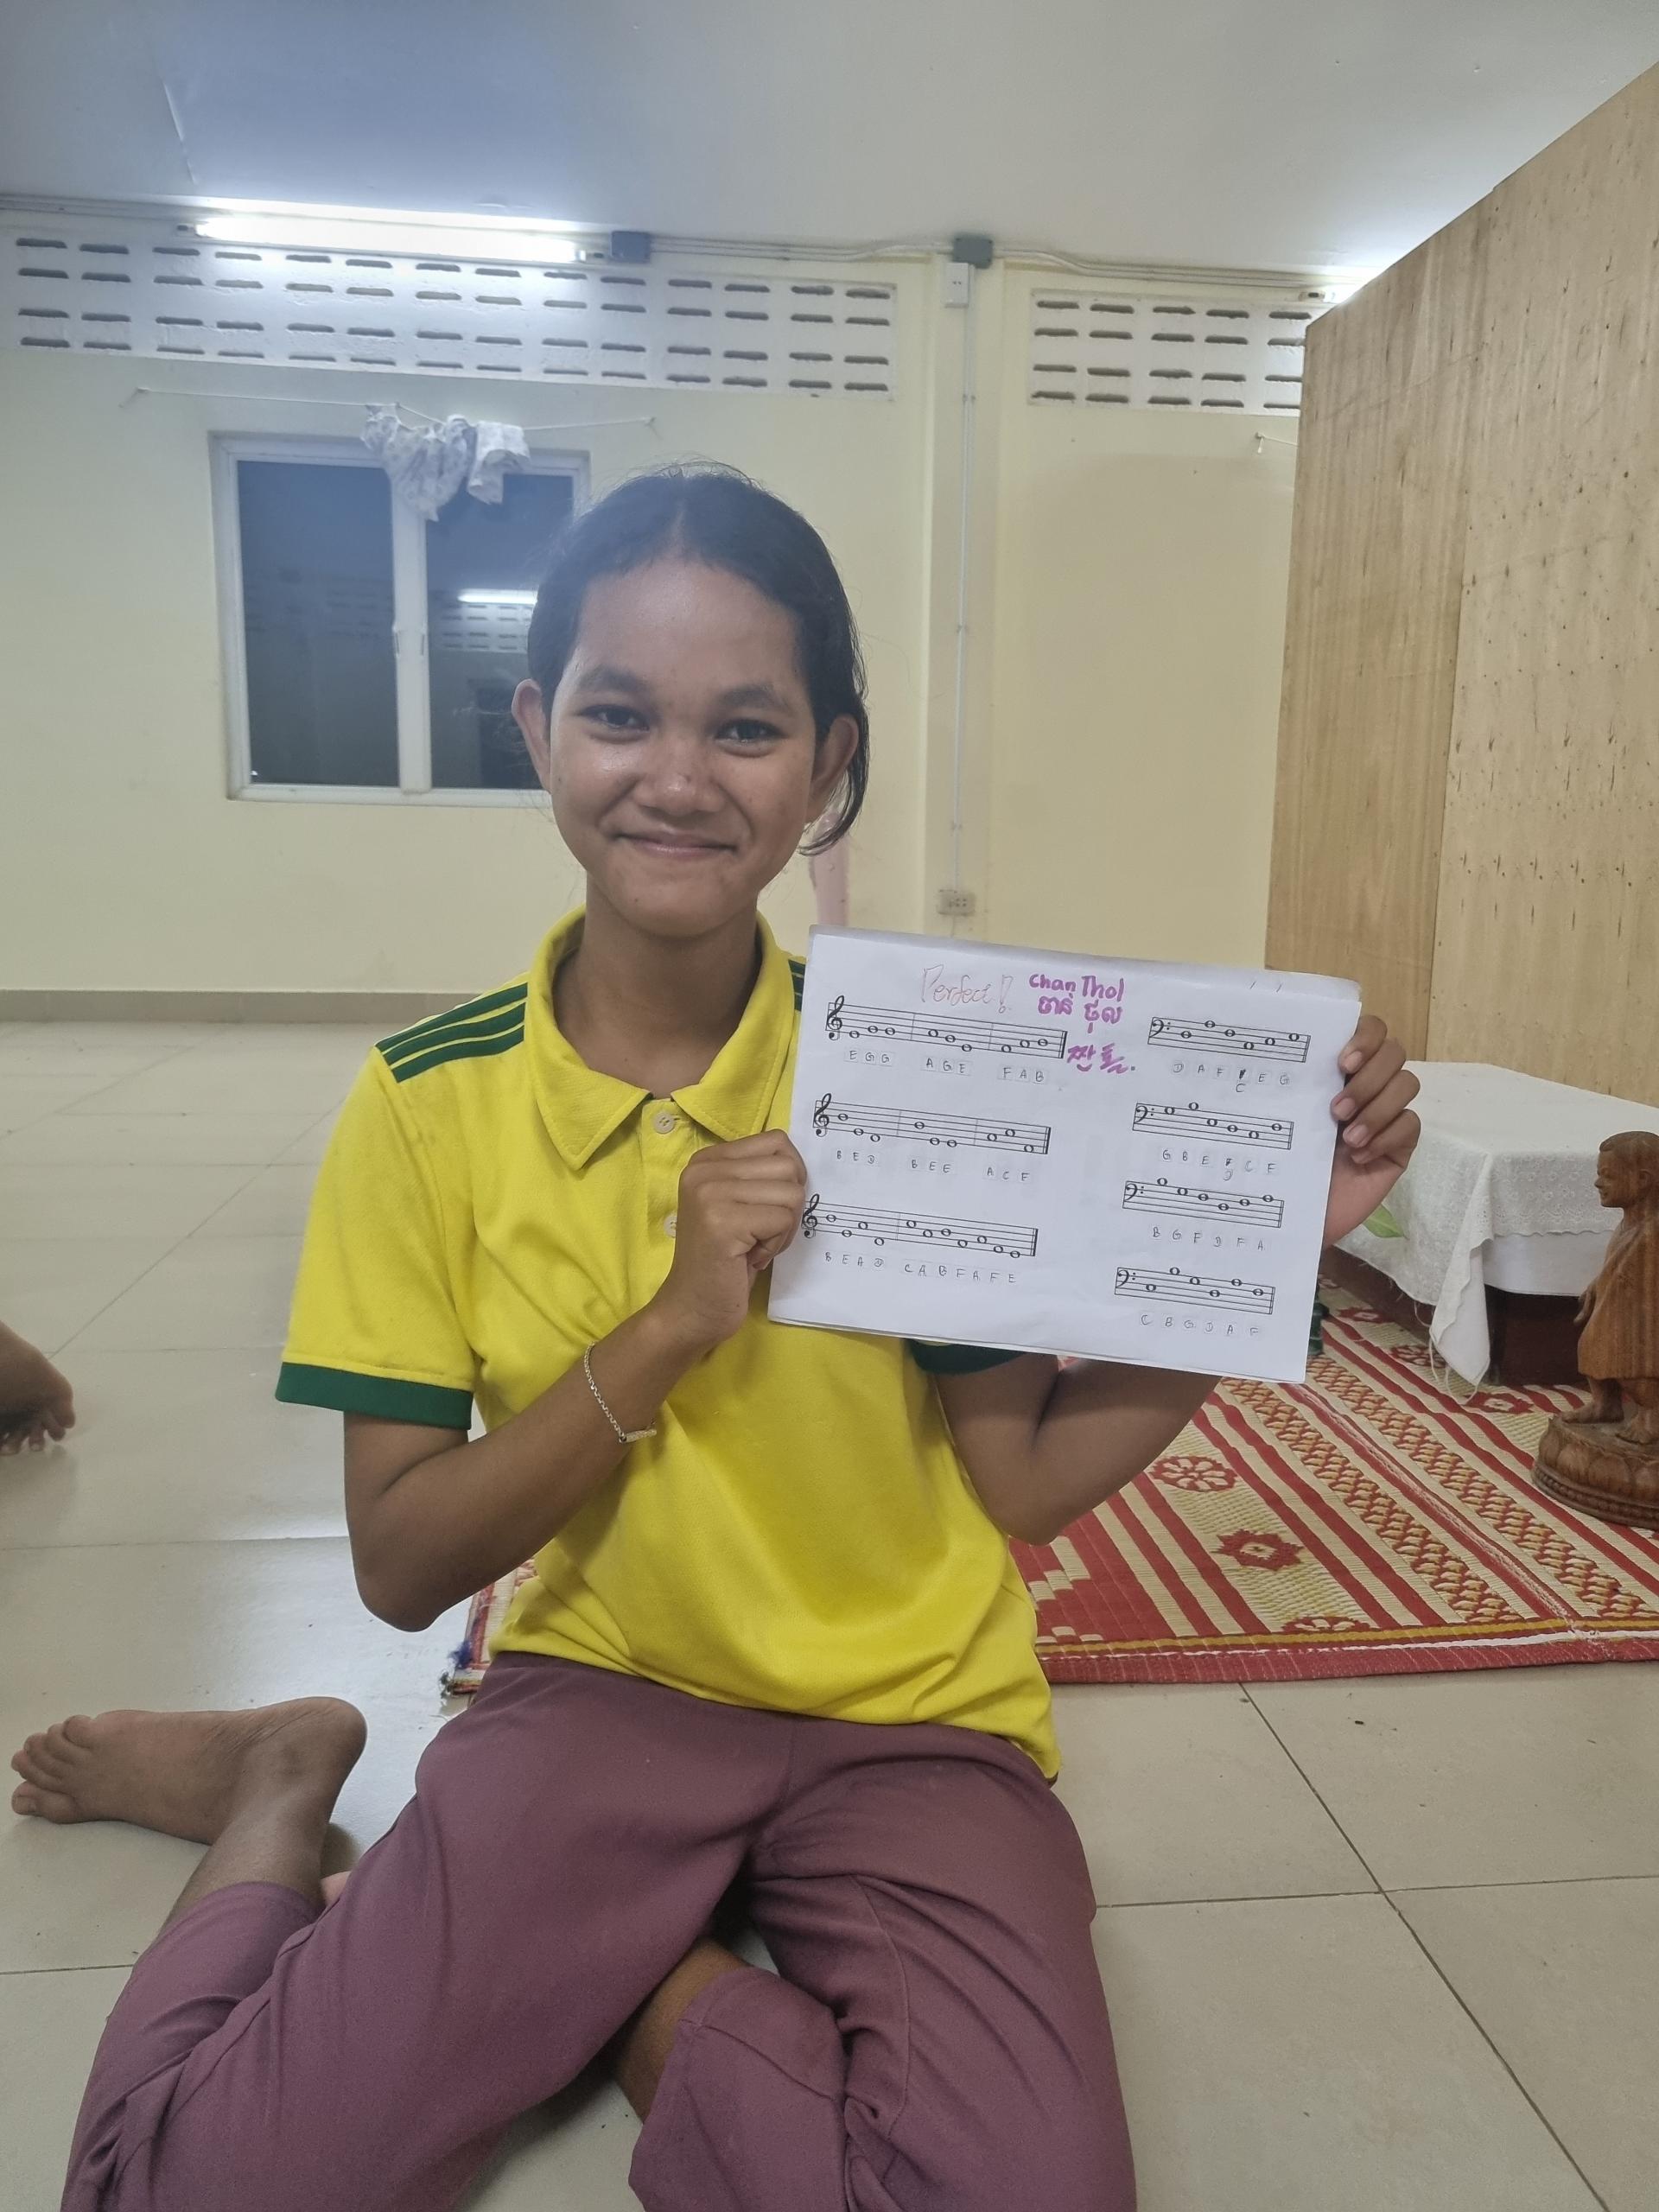 Perfect!
Chan Thol
ចាន់ ធុល
E G G A G E F A B
B E D B E E A C F
B E A D C A B F A F E
D A F E G
C
G B E C F
D
B G F D F A
C B G D A F